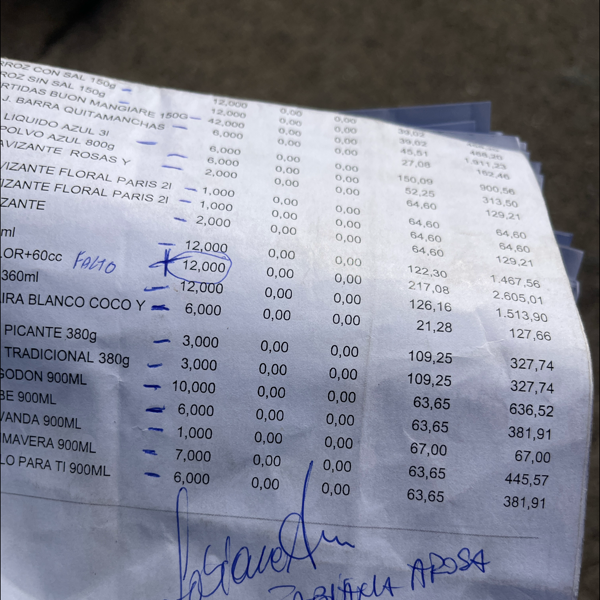 RROZ CON SAL 150g 12,000 0,00 0,00 39,02
ROZ SIN SAL 150g 12,000 0,00 0,00 39,02 468,20
RTIDAS BUON MANGIARE 150G 42,000 0,00 0,00 45,51 1.911,23
J. BARRA QUITAMANCHAS 6,000 0,00 0,00 27,08 162,46
LIQUIDO AZUL 3l 6,000 0,00 0,00 150,09 900,56
POLVO AZUL 800g 6,000 0,00 0,00 52,25 313,50
AVIZANTE ROSAS Y 2,000 0,00 0,00 64,60 129,21
VIZANTE FLORAL PARIS 2l 1,000 0,00 0,00 64,60 64,60
IZANTE FLORAL PARIS 2l 1,000 0,00 0,00 64,60 64,60
ZANTE 2,000 0,00 0,00 64,60 129,21
ml 12,000 0,00 0,00 122,30 1.467,56
LOR+60cc FALTO 12,000 0,00 0,00 217,08 2.605,01
360ml 12,000 0,00 0,00 126,16 1.513,90
IRA BLANCO COCO Y 6,000 0,00 0,00 21,28 127,66
PICANTE 380g 3,000 0,00 0,00 109,25 327,74
TRADICIONAL 380g 3,000 0,00 0,00 109,25 327,74
GODON 900ML 10,000 0,00 0,00 63,65 636,52
BE 900ML 6,000 0,00 0,00 63,65 381,91
VANDA 900ML 1,000 0,00 0,00 67,00 67,00
MAVERA 900ML 7,000 0,00 0,00 63,65 445,57
LO PARA TI 900ML 6,000 0,00 0,00 63,65 381,91
AROSA